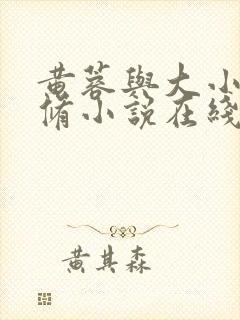 黄蓉與大小
脩小説在綫
黄其森